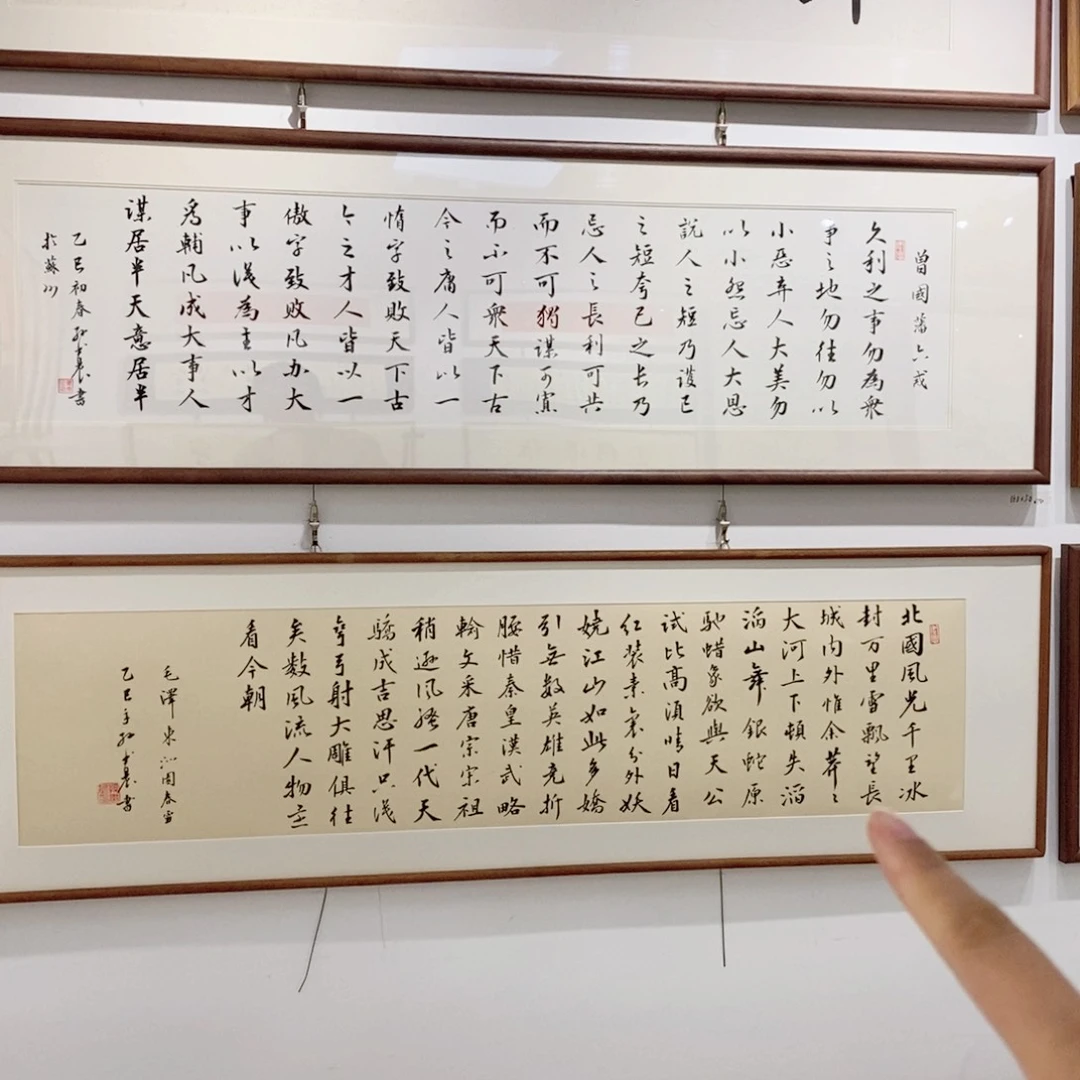 曾國藩六戒
久利之事勿為衆
爭之地勿往勿以
小惡弃人大美勿
以小怨忌人大恩
説人之短乃護己
之短夸己之长乃
忌人之長利可共
而不可獨謀可寡
而不可衆天下古
今之庸人皆以一
惰字致敗天下古
今之才人皆以一
傲字致敗凡办大
事以識為主以才
為輔凡成大事人
謀居半天意居半
乙巳初春書
於蘇州
北國風光千里冰
封万里雪飄望長
城内外惟余莽〻
大河上下頓失滔
滔山舞銀蛇原
馳蜡象欲與天公
試比高須晴日看
红装素裹分外妖
娆江山如此多嬌
引無數英雄竞折
腰惜秦皇漢武略
輸文采唐宗宋祖
稍遜風騷一代天
驕成吉思汗只識
彎弓射大雕俱往
矣數風流人物還
看今朝
毛澤東沁園春雪
乙巳年書